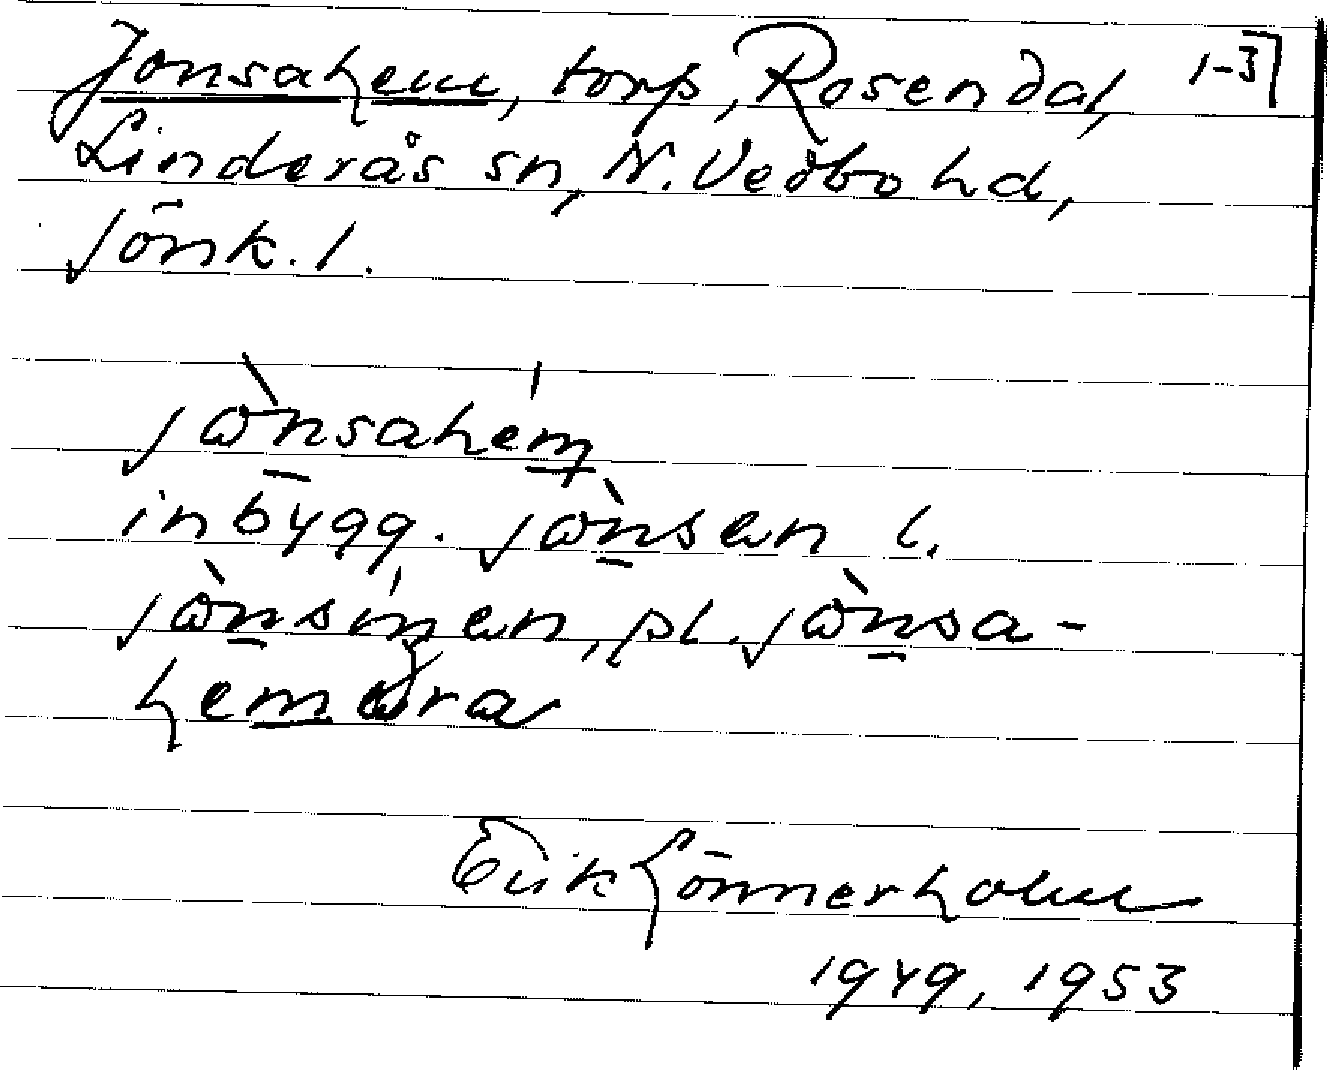 Jonsahem, torp, Rosendal, 1-3
Linderås sn, N. Vedbo hd,
Jönk. l.
jònsahem
inbygg. jònsen l.
jònsingen, pl. jònsa-
hemara
Erik Lönnerholm
1949, 1953